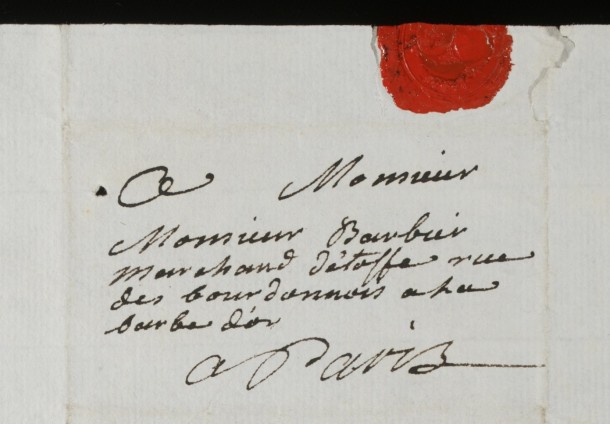 A Monsieur
Monsieur Barbier
marchand d'étoffe rue
des bourdonnois a la
barbe d'or
a Paris